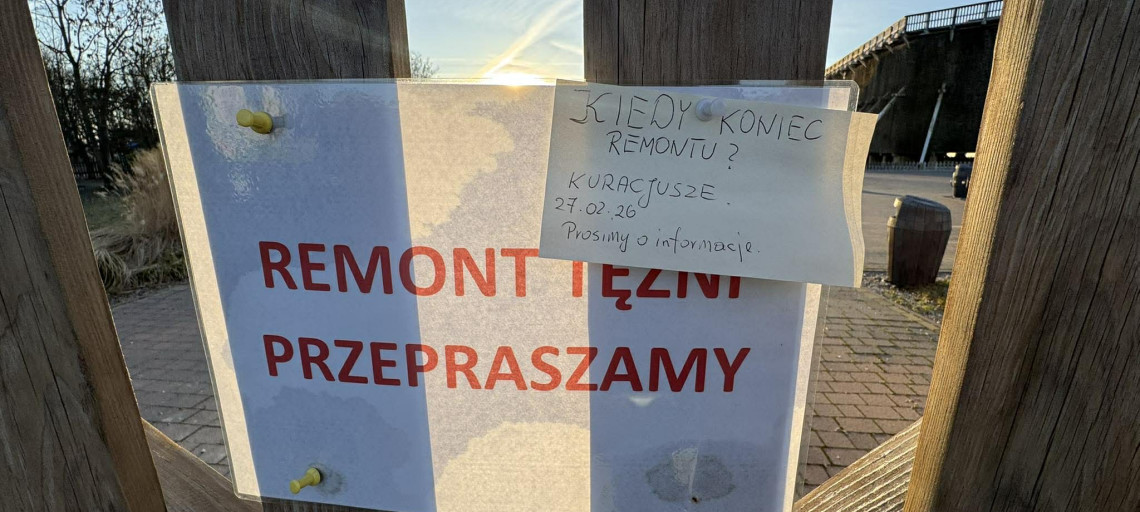 KIEDY KONIEC
REMONTU?
KURACJUSZE.
27.02.26
Prosimy o informacje.
REMONT TĘŻNI
PRZEPRASZAMY